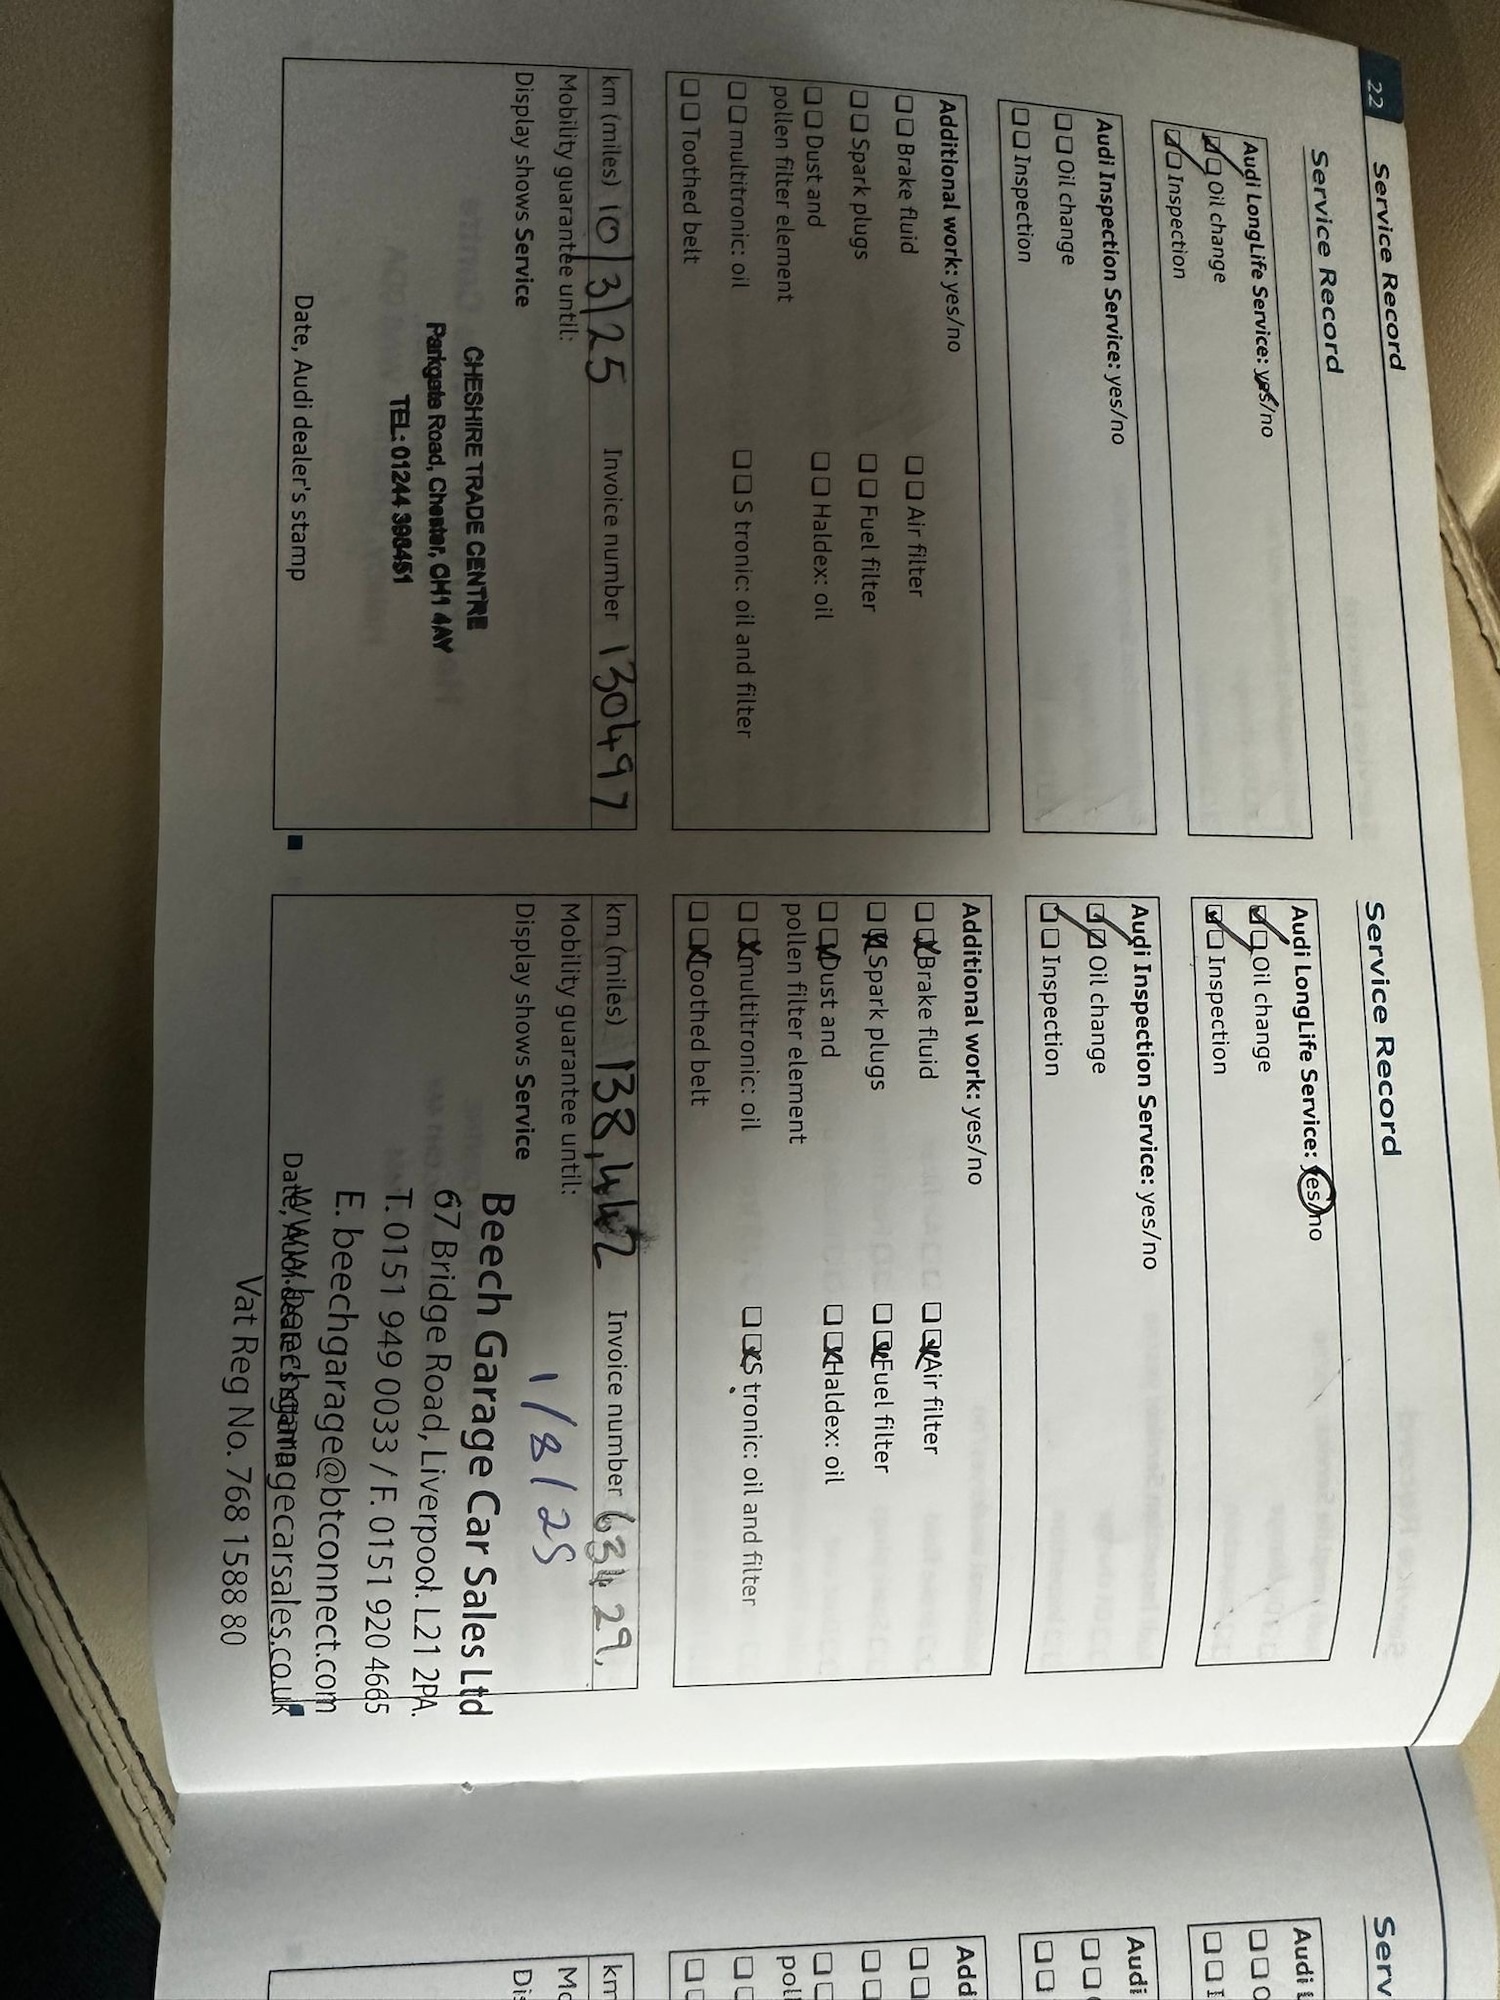 22 Service Record
Service Record
Audi LongLife Service: yes/no
Oil change
Inspection
Audi Inspection Service: yes/no
Oil change
Inspection
Additional work: yes/no
Brake fluid Air filter
Spark plugs Fuel filter
Dust and Haldex: oil
pollen filter element
multitronic: oil S tronic: oil and filter
Toothed belt
km (miles) 10/3/25 Invoice number 130497
Mobility guarantee until:
Display shows Service
CHESHIRE TRADE CENTRE
Parkgate Road, Chester, CH1 4AY
TEL: 01244 398451
Date, Audi dealer's stamp
Service Record
Audi LongLife Service: yes/no
Oil change
Inspection
Audi Inspection Service: yes/no
Oil change
Inspection
Additional work: yes/no
Brake fluid Air filter
Spark plugs Fuel filter
Dust and Haldex: oil
pollen filter element
multitronic: oil S tronic: oil and filter
Toothed belt
km (miles) 138,442 Invoice number 63429,
Mobility guarantee until:
Display shows Service
1/8/25
Beech Garage Car Sales Ltd
67 Bridge Road, Liverpool. L21 2PA.
T. 0151 949 0033 / F. 0151 920 4665
E. beechgarage@btconnect.com
www.beechgaragecarsales.co.uk
Vat Reg No. 768 1588 80
Serv
Audi
Audi
Add
poll
km
Mo
Dis